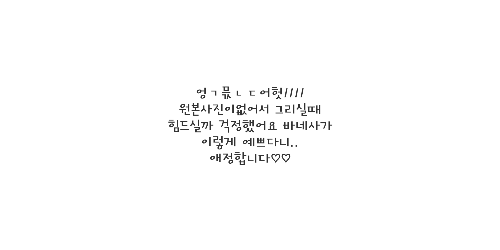 엉ㄱ믃ㄴㄷ어헛////
원본사진이없어서 그리실때
힘드실까 걱정했어요 바네사가
이렇게 예쁘다니..
애정합니다♡♡